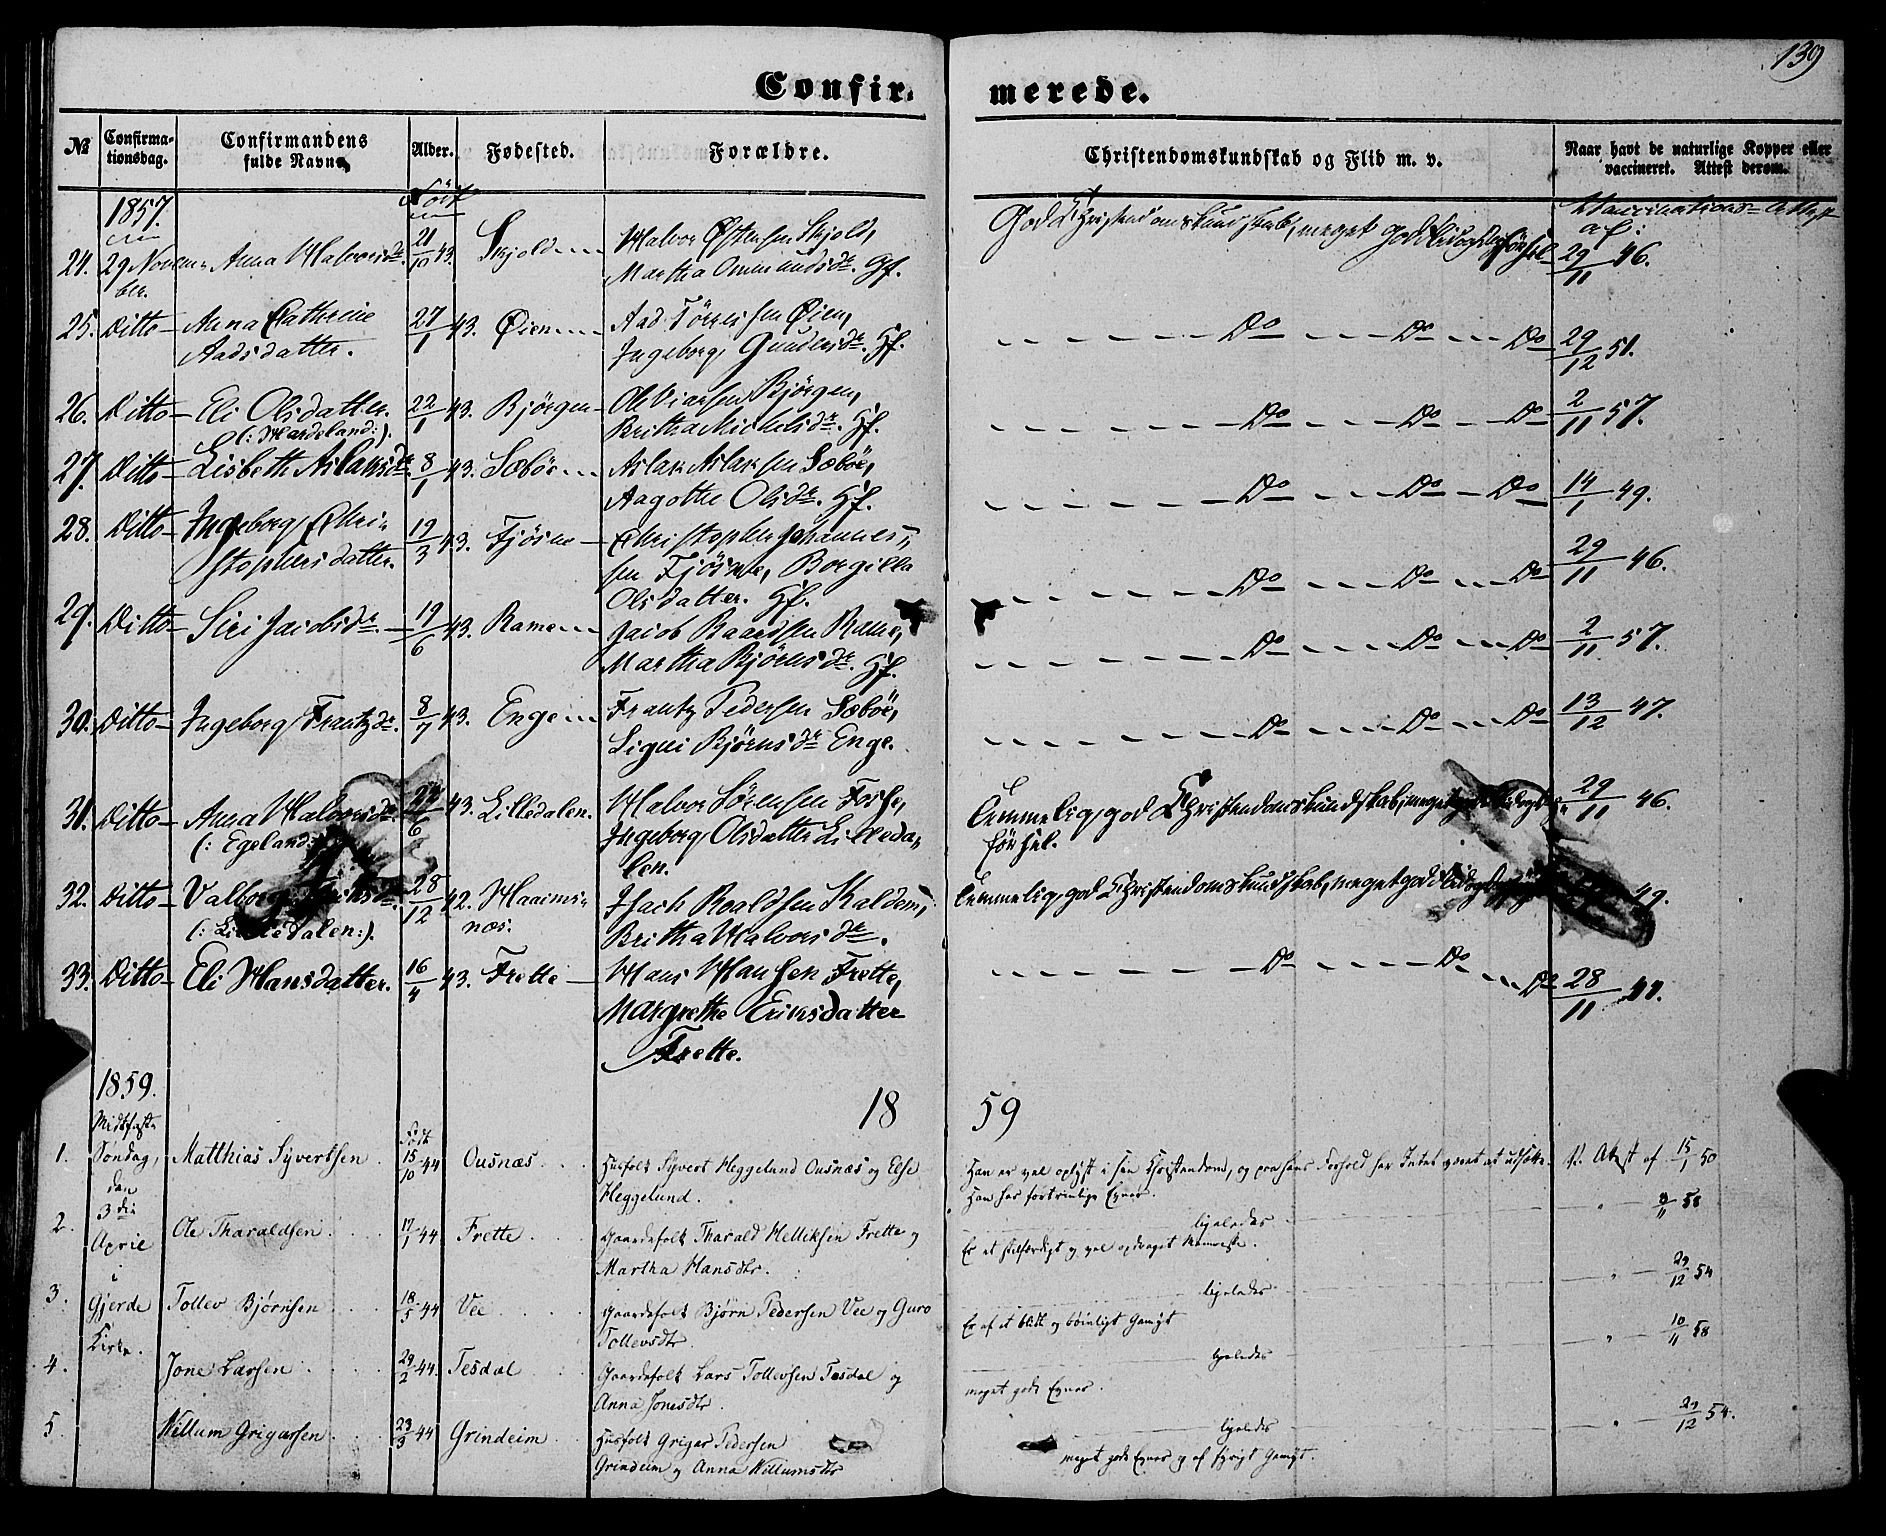 139
Confirmerede.
No
Confirmationsdag.
Confirmandens fulde Navne
Alder.
Fødested.
Forældre.
Christendomskundskab og Flid m. v.
Naar havt de naturlige Kopper eller vaccineret. Attest derom.
1857.
Født
Vaccinations-Attest af:
24. 29 Novem- Anna Halvorsdr. 21/10 43. Skjold Halvor Østensen Skjold, God Christendomskundskab, meget god Flid og Opførsel 29/11 46.
ber. Martha Ommundsdr. Gf.
25. Ditto Anna Cathrine 27/1 43. Øien Aad Tørresen Øien, Do Do Do 29/12 51.
Aadsdatter. Ingeborg Gundersdr. Gf.
26. Ditto Eli Olsdatter. 22/1 43. Bjørgen Ole Bjørgen, Do Do Do 2/11 57.
(: Hardeland:). Britha Michelsdr. Gf.
27. Ditto Lisbeth Aslaksdr. 8/1 43. Sæbøe Aslak Aslaksen Sæbøe, Do Do Do 14/1 49.
Aagothe Olsdr. Gf.
28. Ditto Ingeborg Chri- 19/3 43. Fjøsne Christopher Johannes- Do Do Do 29/11 46.
stophersdatter. sen Fjøsne, Borgilla
Olsdatter. Gf.
29. Ditto Siri Jacobsdr. 19/6 43. Rame Jacob Baardsen Rame, Do Do Do 2/11 57.
Martha Bjørnsdr. Gf.
30. Ditto Ingeborg Frantzdr. 8/7 43. Enge Frantz Pedersen Sæbøe, Do Do Do 13/12 47.
Signi Bjørnsdr Enge.
31. Ditto Anna Halvorsdr. 43. Lilledalen. Halvor Sørensen Fosse, Temmelig god Christendomskundskab, meget 29/11 46.
(: Egeland: Ingeborg Olsdatter Lilleda- førsel.
len.
32. Ditto Valborg 28/12 42. Haaims- Isach Roaldsen Kaldem, Temmelig god Christendomskundskab, meget god Flid og 49.
(: Lilledalen:). næs. Britha Halvorsdr.
33. Ditto Eli Hansdatter. 16/4 43. Frette Hans Hansen Frette, Do Do Do 28/11
Margrethe Eriksdatter
Frette.
1859.
18 59
Midtfaste Født
1. Søndag, Matthias Syvertsen 15/10 44 Ousnæs Husfolk Syvert Heggelund Ousnæs og Else Han er vel oplyst i sin Christendom, og paa hans Forhold har Intet været at udsætte. V. Attest af 15/1 50
den Heggelund. Han har fortrinlige Evner.
3die
2. April Ole Tharaldsen 17/1 44 Frette Gaardefolk Tharald Helliksen Frette og ligeledes " 58
Martha Hansdtr. Er et stilfærdigt og vel opdraget Menneske.
i
3. Gjerde Tollev Bjørnsen 18/5 44 Vee Gaardefolk Bjørn Pedersen Vee og Guro ligeledes " 29/12 54
Kirke. Tollevsdtr. Er af et blidt og bøieligt Gemyt
4. Jone Larsen 29/2 44. Tesdal Gaardefolk Lars Tollevsen Tesdal og ligeledes " 10/11 58
Anna Jonesdtr. meget gode Evner.
5. Willum Grigarsen 23/3 44 Grindeim Husfolk Griger Pedersen ligeledes " 29/12 54.
Grindeim og Anna Willumsdtr meget gode Evner og af Gemyt.